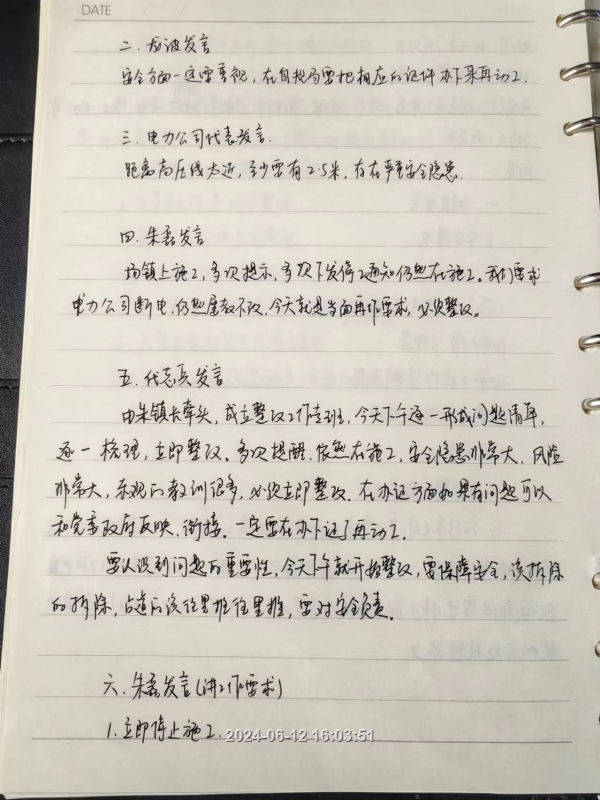 DATE / /
二. 龙波发言
安全方面一定要重视, 在自规局要把相应的证件办下来再动工.
三. 电力公司代表发言.
距离高压线太近, 至少要有2.5米, 存在严重安全隐患.
四. 朱磊发言
场镇上施工, 多次提示, 多次下发停工通知仍然在施工。我们要求
电力公司断电, 仍然屡教不改, 今天就是当面再作要求, 必须整改。
五. 代志兵发言
由朱镇长牵头, 成立整改工作专班, 今天下午逐一形成问题清单,
逐一梳理, 立即整改。多次提醒, 依然在施工, 安全隐患非常大, 风险
非常大, 东观的教训很多, 必须立即整改, 在办证方面如果有问题可以
和党委政府反映、衔接。一定要在办下证了再动工.
要认识到问题的重要性, 今天下午就开始整改, 要保障安全, 该拆除
的拆除, 占道的该往里推往里推, 要对安全负责。
六. 朱磊发言(讲工作要求)
1. 立即停止施工.
2024-06-12 16:03:51